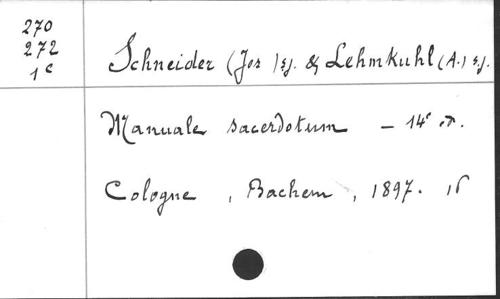 270
272
1c
Schneider (Jos) s.j. & Lehmkuhl (A.) s.j.
Manuale sacerdotum - 14e éd.
Cologne, Bachem, 1897. 16